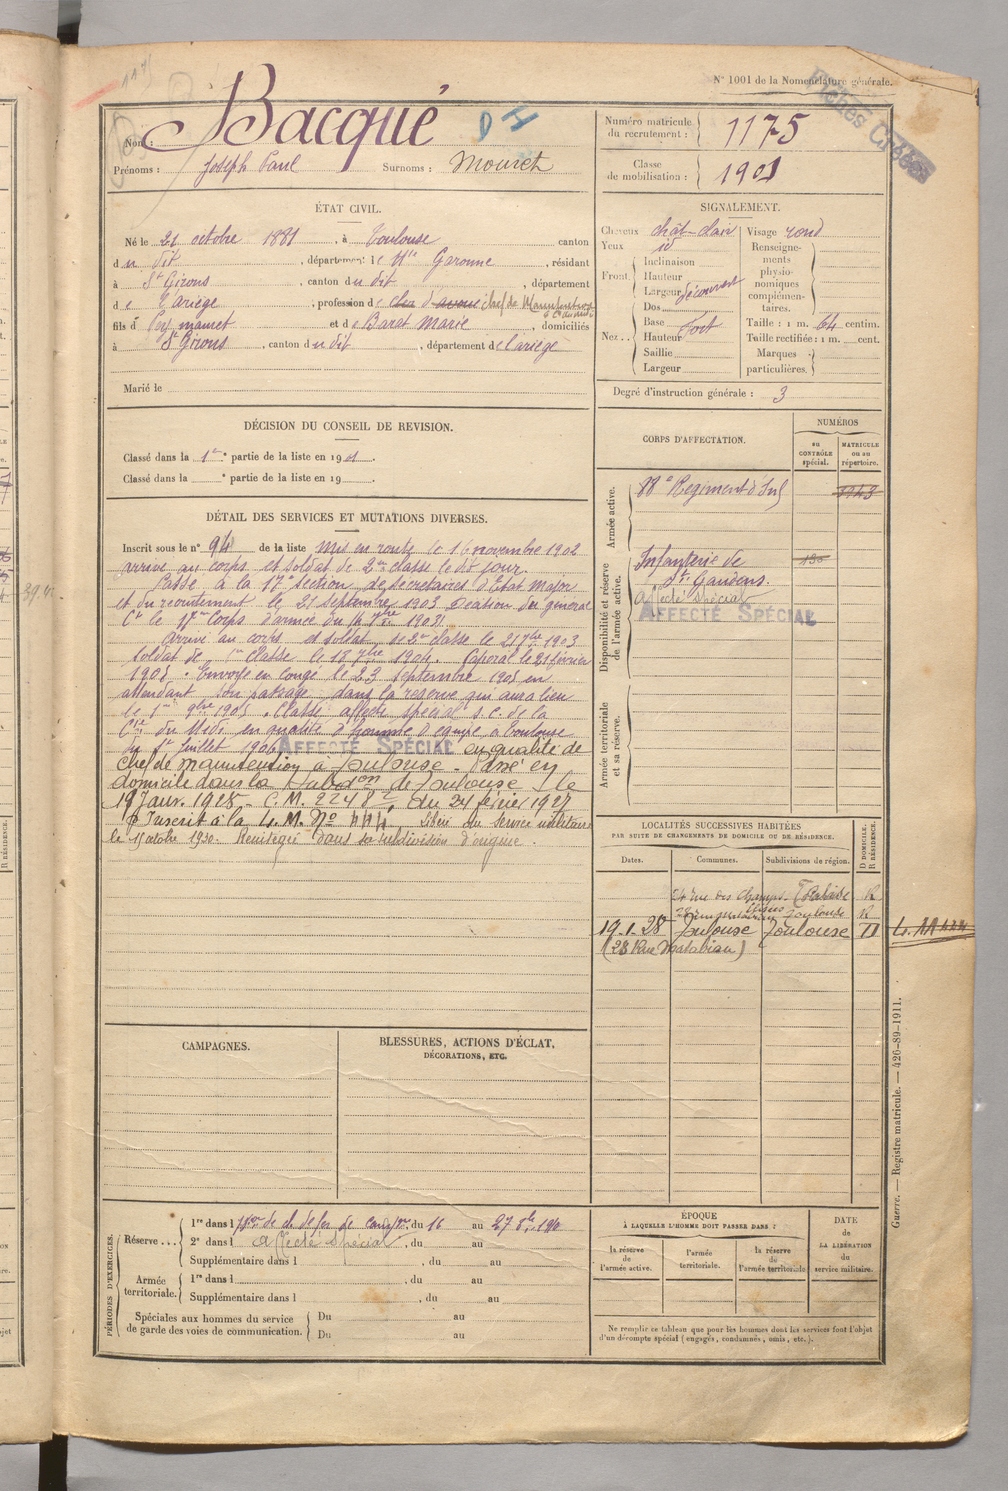 N° 1001 de la Nomenclature générale.
Fichés Croisés
Nom : Bacqué
D I
Prénoms : Joseph Paul Surnoms : Mouret
Numéro matricule du recrutement : 1175
Classe de mobilisation : 1901
ÉTAT CIVIL.
Né le 21 octobre 1881, à Toulouse canton
du dit, département de Hte Garonne, résidant
à St Girons, canton du dit, département
de l'ariège, profession de chef de Manutention
fils de et de Barat Marie, domiciliés
à St Girons, canton du dit, département de l'ariège
Marié le
SIGNALEMENT.
Cheveux chât-clair
Yeux id
Front.
Inclinaison
Hauteur
Largeur découvert
Nez..
Dos
Base
Hauteur fort
Saillie
Largeur
Visage rond
Renseignements physionomiques complémentaires.
Taille : 1 m. 64 centim.
Taille rectifiée : 1 m. cent.
Marques particulières.
Degré d'instruction générale : 3
DÉCISION DU CONSEIL DE REVISION.
Classé dans la 1re partie de la liste en 1901.
Classé dans la ° partie de la liste en 19
CORPS D'AFFECTATION.
NUMÉROS
au CONTRÔLE spécial.
MATRICULE ou au répertoire.
Armée active.
88e Régiment d'Inf
1943
Disponibilité et réserve de l'armée active.
Infanterie de
St Gaudens.
Affecté spécial
AFFECTÉ SPÉCIAL
Armée territoriale et sa réserve.
DÉTAIL DES SERVICES ET MUTATIONS DIVERSES.
Inscrit sous le n° 94 de la liste mis en route le 16 novembre 1902
arrivé au corps et soldat de 2e classe le dit jour.
Passé à la 17e section de secrétaires d'Etat Major
et du recrutement le 21 septembre 1903 Décision du général
Ct le 17me Corps d'armée du 1903.
arrivé au corps et soldat de 2e classe le 21 7bre 1903
soldat de 1re classe le 18 7bre 1904. Caporal le 21 février
1905. Envoyé en congé le 23 septembre 1905 en
attendant son passage dans la réserve qui aura lieu
le 1er 9bre 1905. Classé affecté spécial s.c. de la
Cie du Midi en qualité d'homme d'équipe à Toulouse
du 1er juillet 1906 AFFECTÉ SPÉCIAL en qualité de
chef de manutention à Toulouse. Passé en
domicile dans la subdon de Toulouse le
19 Janv. 1928. C.M. 2248 du 24 février 1927
Inscrit à la L.M. No 444 Libéré du service militaire
le 15 octobre 1930. Réintégré dans sa subdivision d'origine.
LOCALITÉS SUCCESSIVES HABITÉES
PAR SUITE DE CHANGEMENTS DE DOMICILE OU DE RÉSIDENCE.
D DOMICILE. R RÉSIDENCE.
Dates. Communes. Subdivisions de région.
24 rue des Champs Elysées Toulouse R
Toulouse R
19-1-28 Toulouse Toulouse D
(28 Rue Matabiau)
CAMPAGNES.
BLESSURES, ACTIONS D'ÉCLAT,
DÉCORATIONS, ETC.
Guerre. — Registre matricule. — 426-89-1911.
PÉRIODES D'EXERCICES.
Réserve...
1re dans l de ch de fer de camp, du 16 au 27
2e dans l affecté spécial, du au
Supplémentaire dans l, du au
Armée territoriale.
1re dans l, du au
Supplémentaire dans l, du au
Spéciales aux hommes du service de garde des voies de communication.
Du au
Du au
ÉPOQUE
À LAQUELLE L'HOMME DOIT PASSER DANS :
la réserve de l'armée active.
l'armée territoriale.
la réserve de l'armée territoriale
DATE de LA LIBÉRATION du service militaire.
Ne remplir ce tableau que pour les hommes dont les services font l'objet
d'un décompte spécial (engagés, condamnés, omis, etc.).